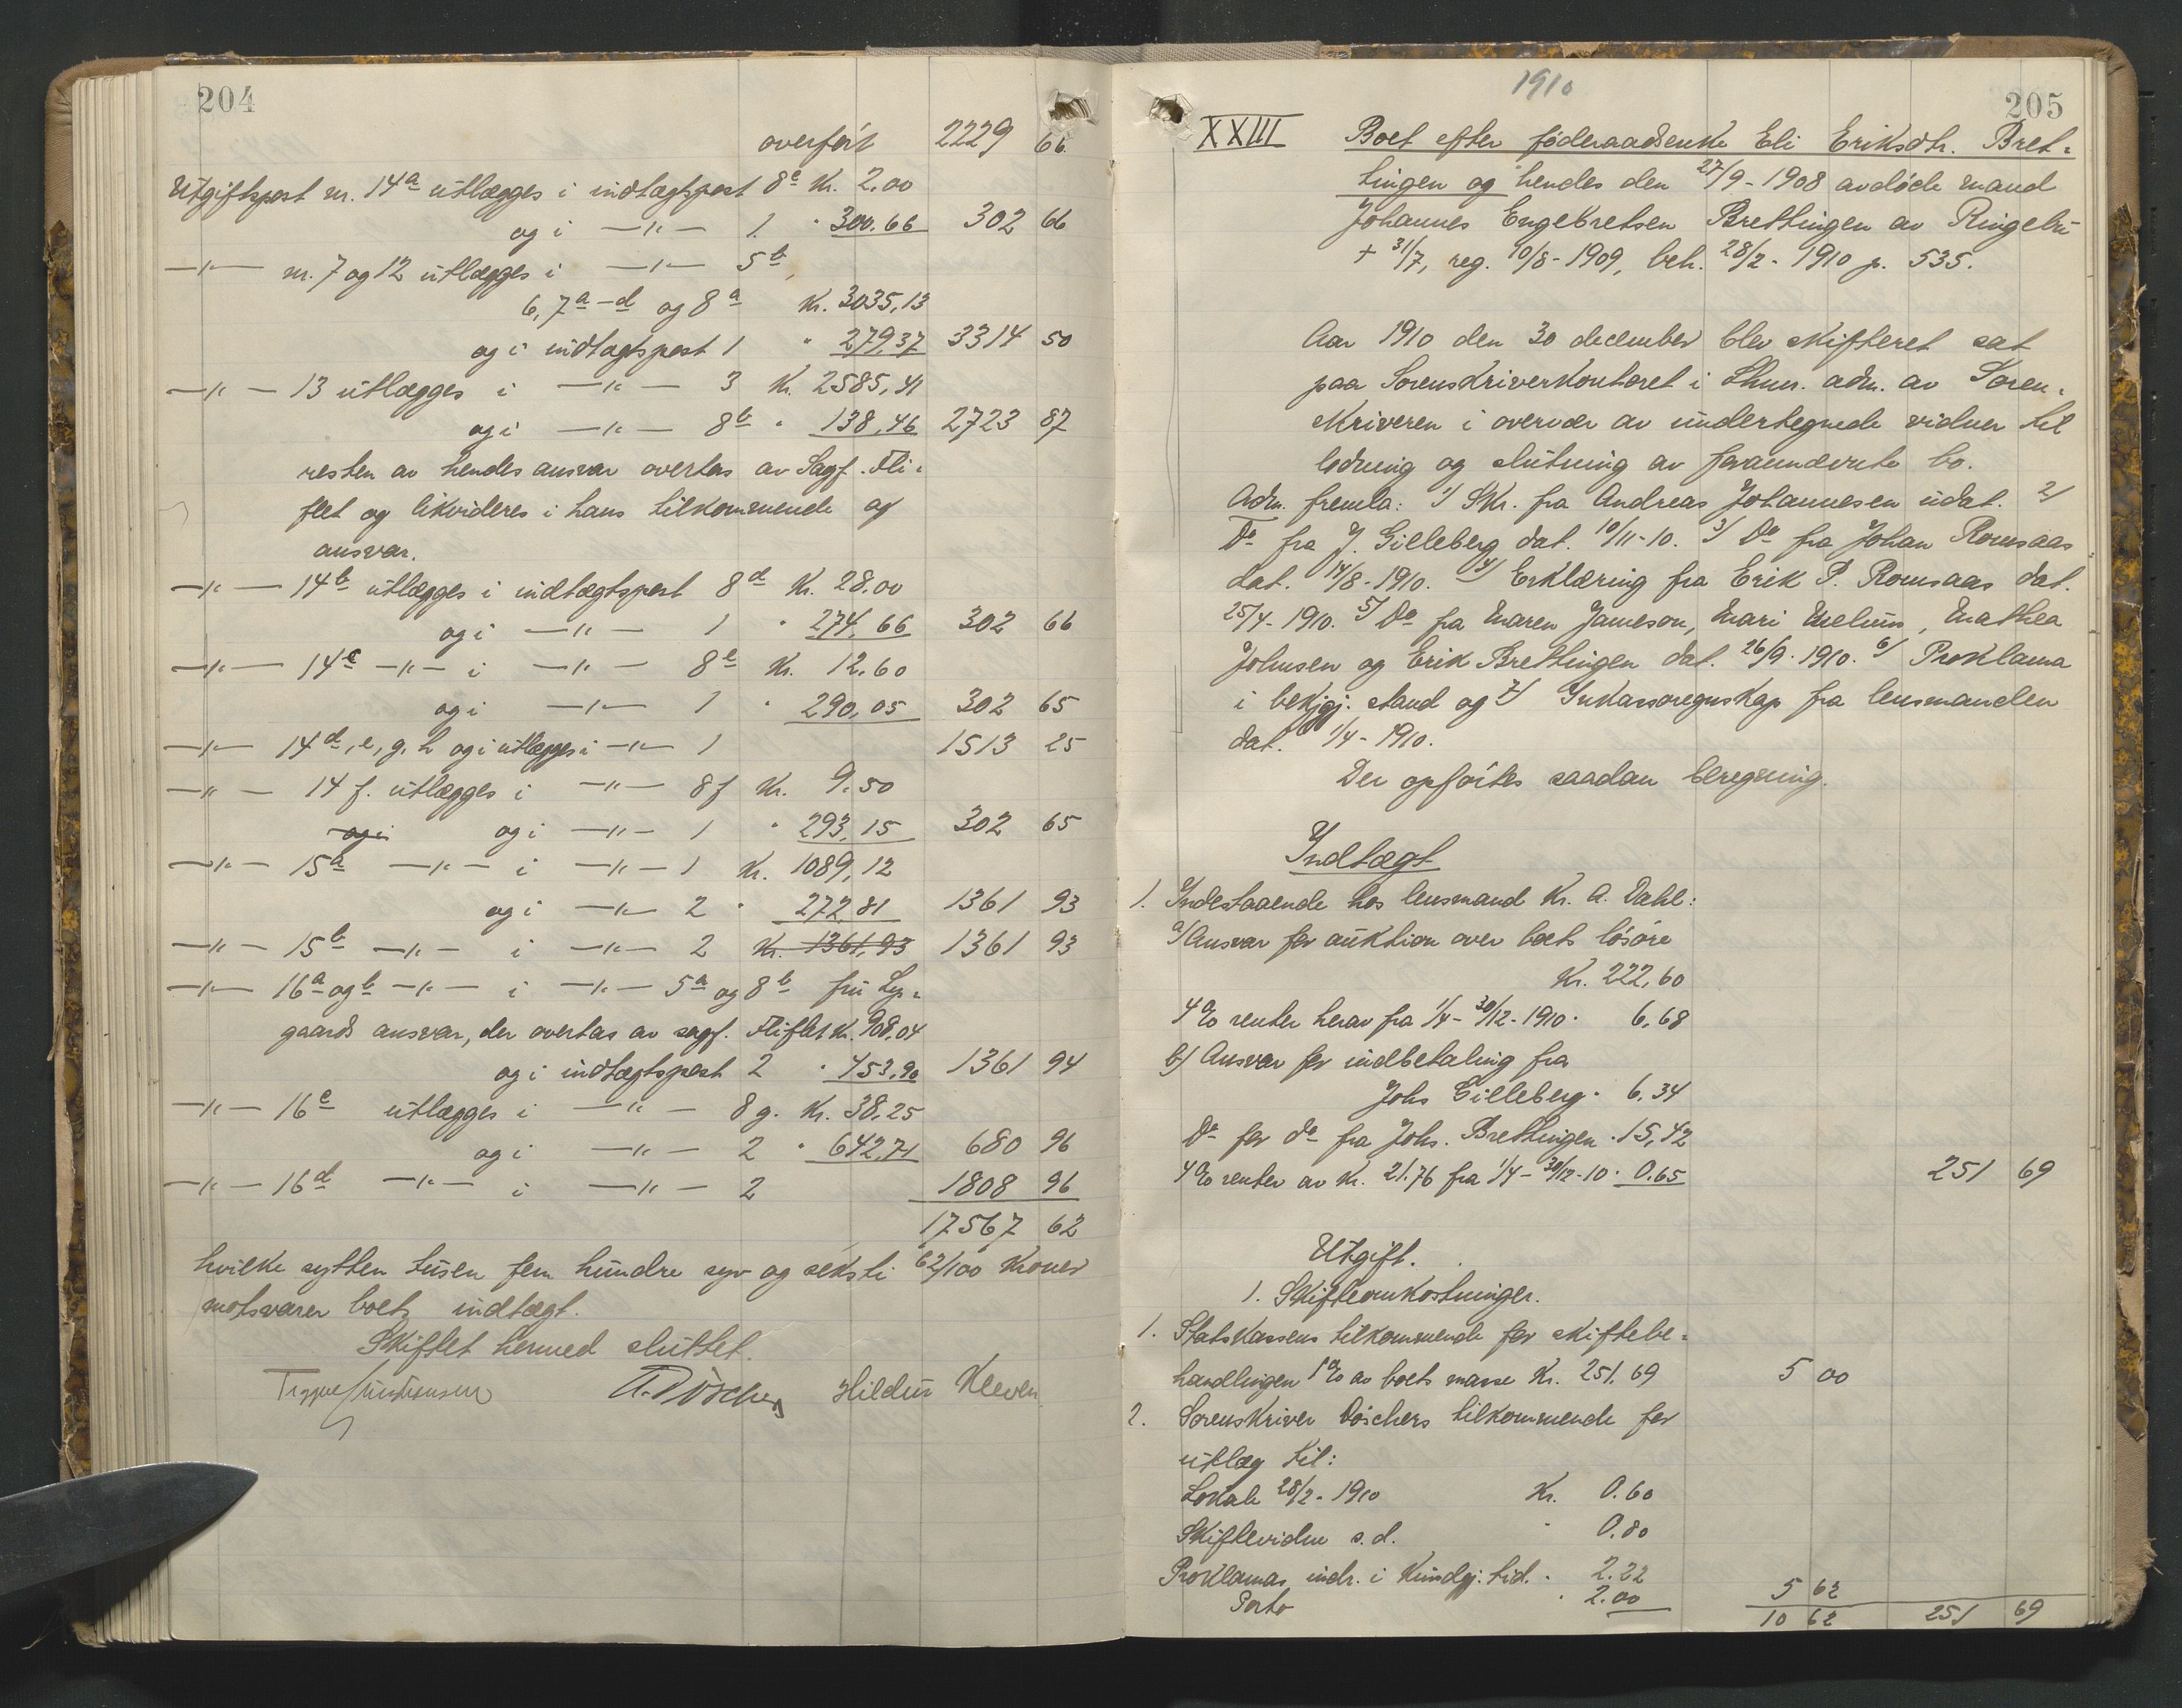 204
overført 2229 66
Utgiftspost nr. 14a utlægges i indtægtspost 8c Kr. 2.00
og i —"— 1 " 300.66 302 66
—"— nr. 7 og 12 utlægges i —"— 5b,
6, 7a-d og 8a Kr. 3035,13
og i indtægtspost 1 " 279,37 3314 50
—"— 13 utlægges i —"— 3 Kr. 2585,41
og i —"— 8b " 138,46 2723 87
resten av hendes ansvar overtas av Sagf. Fli-
flet og likvideres i hans tilkommende og
ansvar.
—"— 14b utlægges i indtægtspost 8d Kr. 28.00
og i —"— 1 " 274,66 302 66
—"— 14c —"— i —"— 8e Kr. 12,60
og i —"— 1 " 290,05 302 65
—"— 14d, e, g, h og i utlægges i —"— 1 1513 25
—"— 14 f. utlægges i —"— 8f Kr. 9,50
og i og i —"— 1 " 293,15 302 65
—"— 15a —"— i —"— 1 Kr. 1089,12
og i —"— 2 " 272,81 1361 93
—"— 15b —"— i —"— 2 Kr. 1361,93 1361 93
—"— 16a og b —"— i —"— 5a og 8b fru Ly-
gaards ansvar, der overtas av sagf. Fliflet Kr. 908,04
og i indtægtspost 2 " 453,90 1361 94
—"— 16c utlægges i —"— 8g. Kr. 38,25
og i —"— 2 " 642,71 680 96
—"— 16d —"— i —"— 2 1808 96
17567 62
hvilke sytten tusen fem hundre syv og seksti 62/100 Kroner
motsvarer boets indtægt.
Skiftet hermed sluttet.
Trygve Kristiansen A. Döscher Hildur Kleven
1910
205
XXIII Boet efter føderaadsenke Eli Eriksdtr. Bret-
tingen og hendes den 27/9-1908 avdøde mand
Johannes Engebretsen Brettingen av Ringebu
+ 31/7, reg. 10/8-1909, beh. 28/2-1910 p. 535.
Aar 1910 den 30 december blev skifteret sat
paa Sorenskriverkontoret i Lhmr. adm. av Soren-
skriveren i overvær av undertegnede vidner til
lodning og slutning av forannævnte bo.
Adm. fremla: 1/ Skr. fra Andreas Johannesen udat. 2/
Do fra J. Gilleberg dat. 10/11-10. 3/ Do fra Johan Romsaas
dat. 14/8-1910. 4/ Erklæring fra Erik P. Romsaas dat.
25/4-1910. 5/ Do fra Maren Jameson, Mari Melum, Mathea
Johnsen og Erik Brettingen dat. 26/9-1910. 6/ Proklama
i bekjgj. stand og 7/ Inkassoregnskap fra lensmanden
dat. 1/4-1910.
Der opførtes saadan beregning.
Indtægt
1. Indestaaende hos lensmand Kr. A. Dahl:
a/ Ansvar for auktion over boets løsøre
Kr. 222,60
4 % renter herav fra 1/4-30/12-1910 " 6,68
b/ Ansvar for indbetaling fra
Johs Gilleberg " 6,34
Do for do fra Johs. Brettingen " 15,42
4 % renter av Kr. 21.76 fra 1/4-30/12-10 " 0.65 251 69
Utgift.
1. Skifteomkostninger.
1. Statskassens tilkommende for skiftebe-
handlingen 1 % av boets masse Kr. 251.69 5 00
2. Sorenskriver Döschers tilkommende for
utlæg til:
Lokale 28/2-1910 Kr. 0.60
Skiftevidne s.d. " 0.80
Proklamas indr. i Kundgj. tid. " 2.22
Porto " 2.00 5 62
10 62 251 69